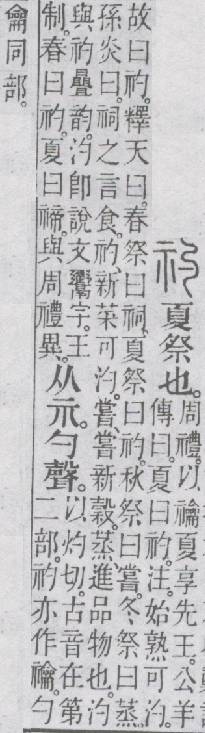 礿 夏祭也。
周禮。以禴夏享先王。公羊
傳曰。夏曰礿。注。始熟可汋。
故曰礿。釋天曰。春祭曰祠。夏祭曰礿。秋祭曰嘗。冬祭曰蒸。
孫炎曰。祠之言食。礿、新菜可汋。嘗、嘗新穀。蒸、進品物也。汋
與礿疊韵。汋卽說文字。王
制。春曰礿。夏曰禘。與周禮異。
从示。勺聲。
以灼切。古音在第
二部。礿亦作禴。勺
龠同部。